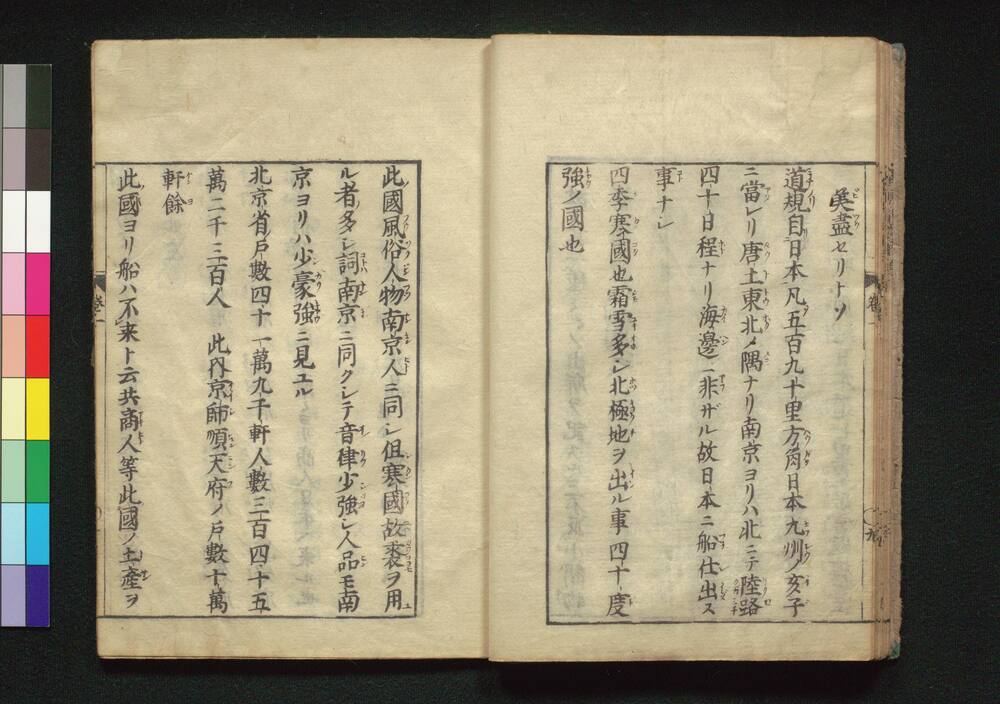 奐盡セリトソ
道規自日本凡五百九十里方角日本九州ノ亥子
ニ當レリ唐土東北ノ隅ナリ南京ヨリハ北ニテ陸路
四十日程ナリ海邊ニ非ザル故日本ニ船仕出ス
事ナシ
四季寒國也霜雪多シ北極地ヲ出ル事四十度
強ノ國也
此國風俗人物南京人ニ同シ但寒國故裘ヲ用
ル者多シ詞南京ニ同クシテ音律少強シ人品モ南
京ヨリハ少豪強ニ見エル
北京省戸數四十一萬九千軒人數三百四十五
萬二千三百人 此内京師順天府ノ戸數十萬
軒餘
此國ヨリ船ハ不来ト云共商人等此國ノ土産ヲ
卷一
卷一
九